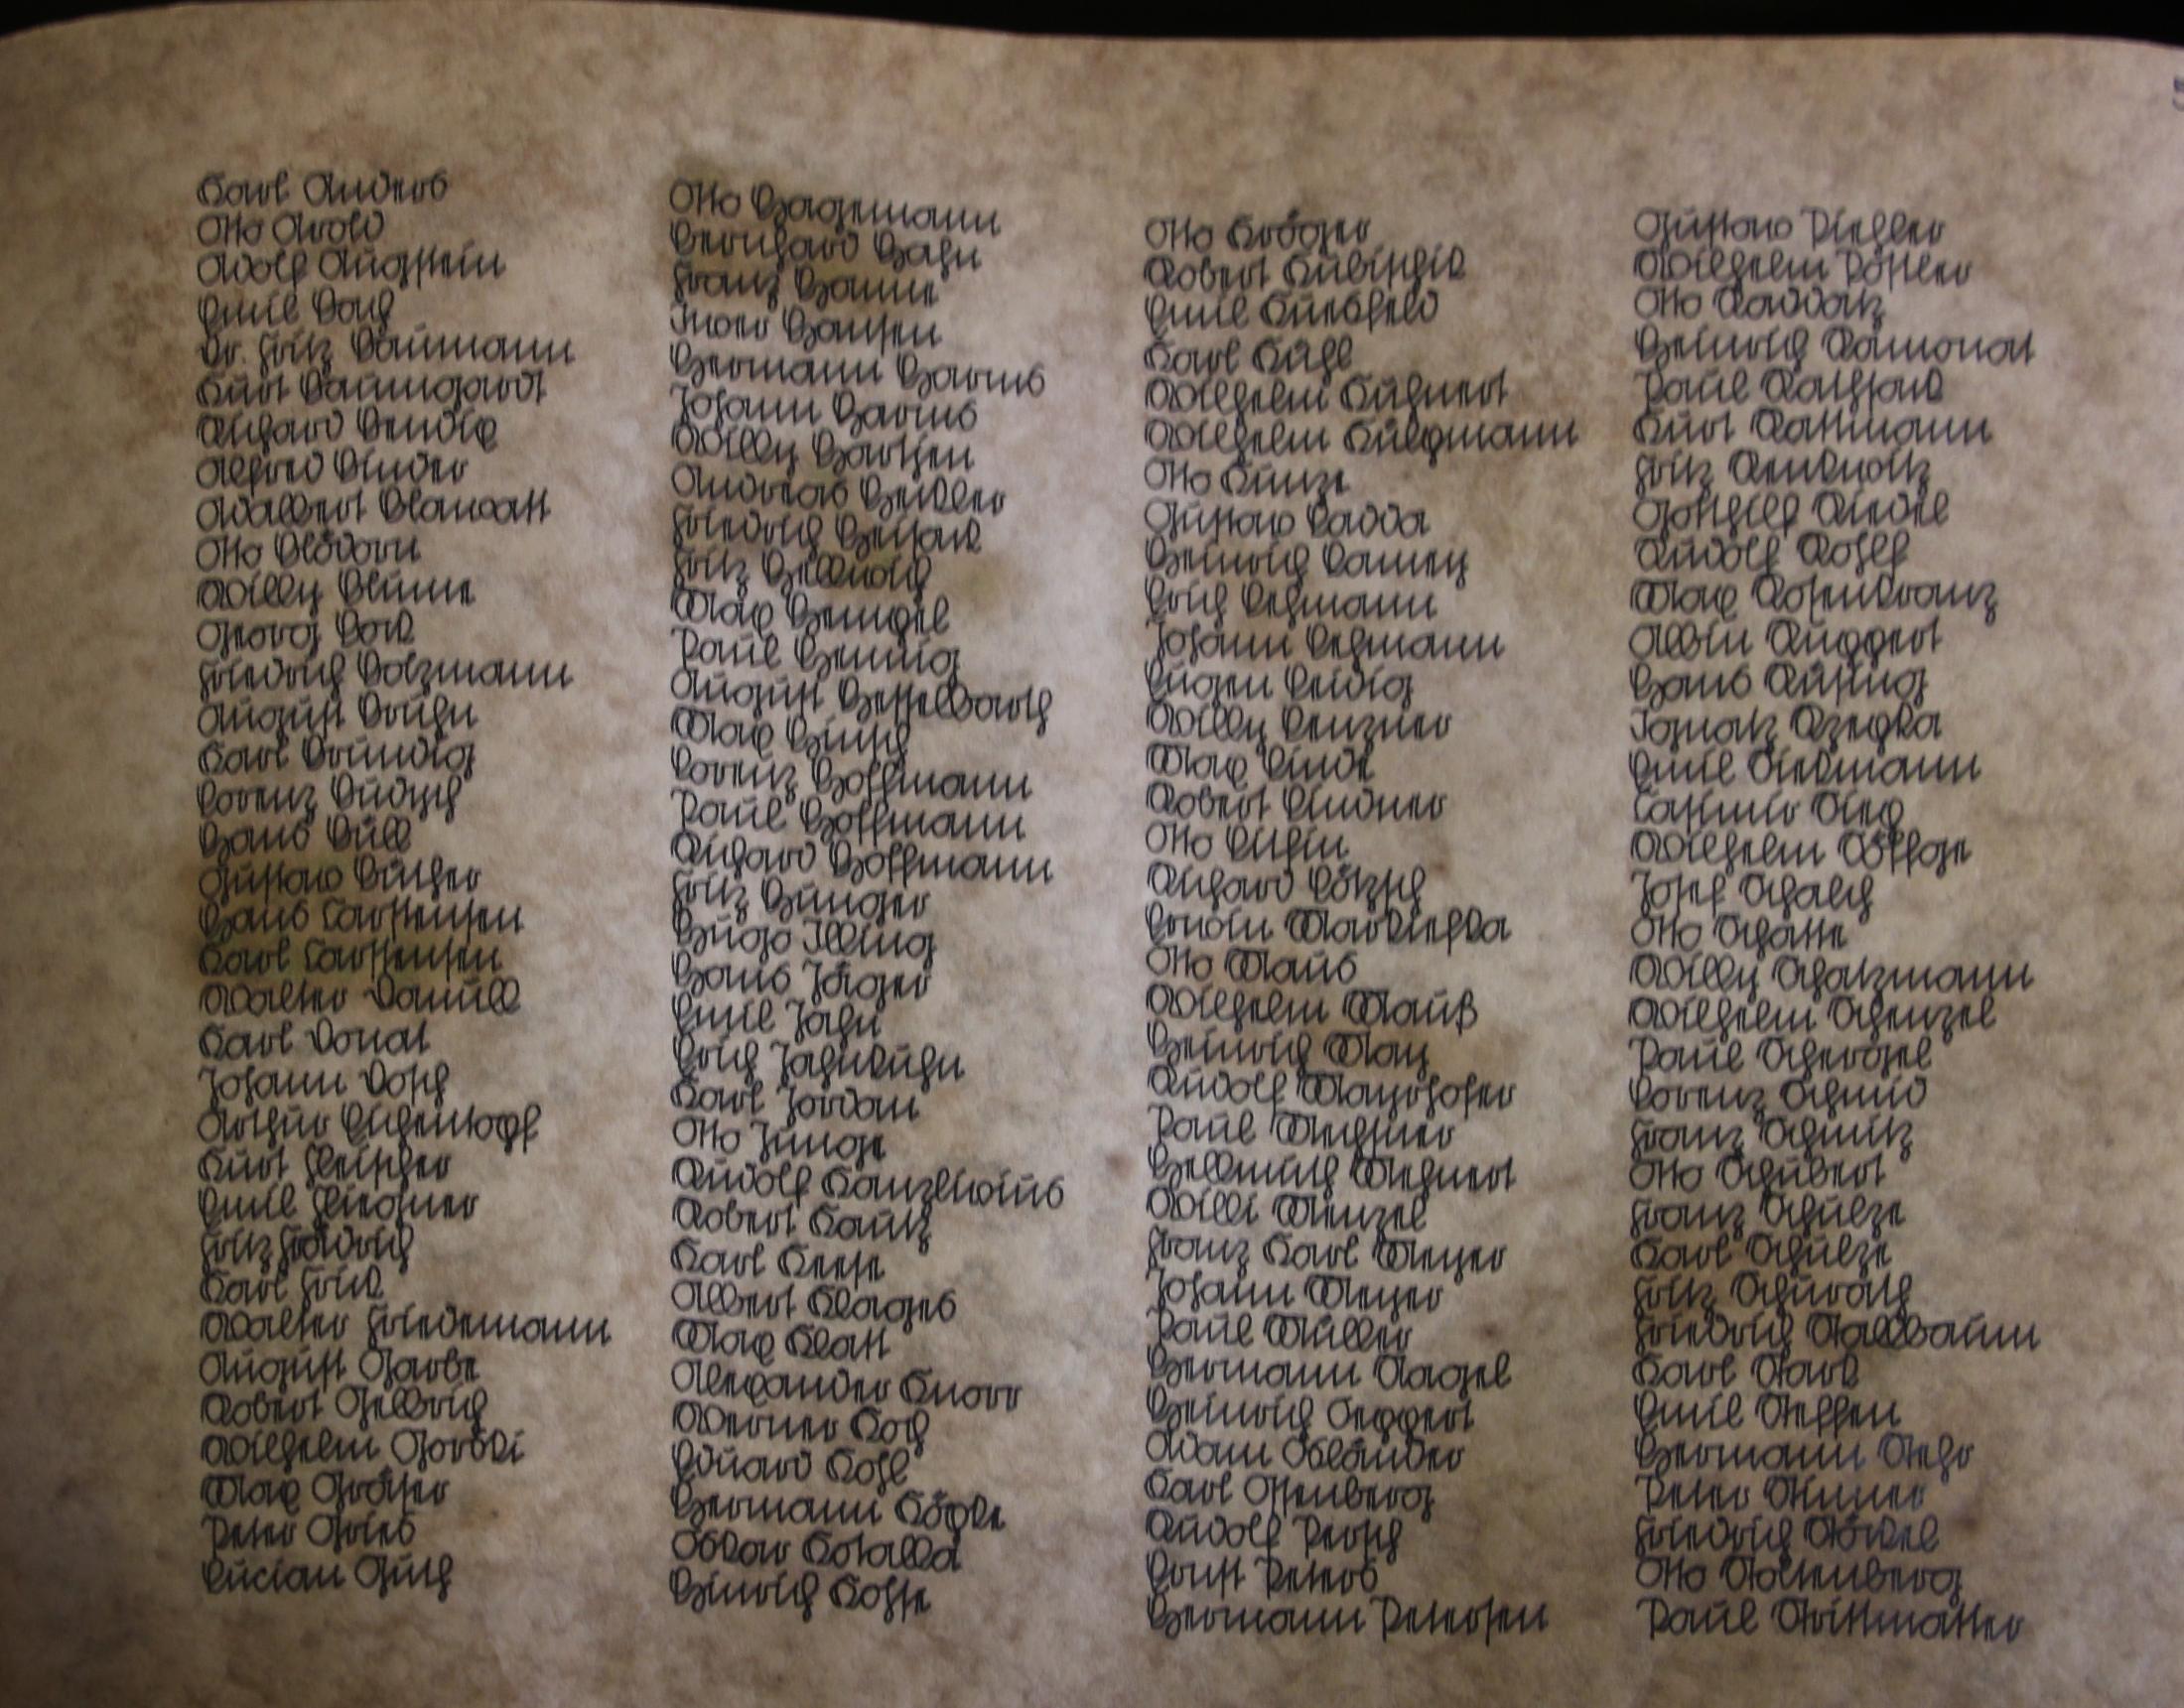 Karl Anders
Otto Arold
Adolf Augstein
Emil Bach
Dr. Fritz Baumann
Kurt Baumgardt
Richard Bendix
Alfred Binder
Adalbert Blawatt
Otto Blödorn
Willy Blume
Georg Bock
Friedrich Bolzmann
August Bruhn
Karl Brundig
Lorenz Budzsch
Hans Büll
Gustav Büther
Hans Carstensen
Karl Carstensen
Walter Danull
Karl Donat
Johann Dosch
Arthur Eichentopf
Kurt Fleischer
Emil Fliegner
Fritz Frädrich
Karl Frick
Walter Friedemann
August Garbe
Robert Gellrich
Wilhelm Gorski
Max Gräser
Peter Gries
Lucian Guth
Otto Hagemann
Bernhard Hahn
Franz Hanne
Iwer Hansen
Hermann Harms
Johann Harms
Willy Hartjen
Andreas Heikler
Friedrich Heisack
Fritz Hellwich
Max Hempel
Paul Hennig
August Hesselbarth
Max Hinsch
Lorenz Hoffmann
Paul Hoffmann
Richard Hoffmann
Fritz Hunger
Hugo Illing
Hans Jäger
Emil Jahn
Erich Jahnkuhn
Karl Jordan
Otto Junge
Rudolf Kanzliwius
Robert Kautz
Karl Keese
Albert Klages
Max Klatt
Alexander Knorr
Werner Koch
Eduard Kohl
Hermann Köpke
Oskar Kotalla
Hinrich Kohse
Otto Kröger
Robert Kubischik
Emil Kuesfeld
Karl Kühl
Wilhelm Kuhnert
Wilhelm Külpmann
Otto Kunze
Gustav Ladda
Heinrich Lamey
Erich Lehmann
Johann Lehmann
Eugen Leidig
Willy Lenzner
Max Linde
Robert Lindner
Otto Lithin
Richard Lötzsch
Erwin Markiefka
Otto Maus
Wilhelm Mauß
Heinrich May
Rudolf Mayrhofer
Paul Mechsner
Hellmuth Mehnert
Willi Menzel
Franz Karl Meyer
Johann Meyer
Paul Müller
Hermann Nagel
Heinrich Oeppert
Adam Osländer
Karl Ostenberg
Rudolf Persch
Ernst Peters
Hermann Petersen
Gustav Piehler
Wilhelm Pößler
Otto Raddatz
Heinrich Ramonat
Paul Rathsack
Kurt Rattmann
Fritz Renkwitz
Gotthilf Riedel
Rudolf Rohlf
Max Rosenkranz
Albin Ruppert
Hans Rüsing
Ignatz Rzepka
Emil Siekmann
Casimir Sieg
Wilhelm Söffge
Josef Schalch
Otto Schatte
Willy Schatzmann
Wilhelm Schenzel
Paul Schergel
Lorenz Schmid
Franz Schmitz
Otto Schubert
Franz Schulze
Karl Schulze
Fritz Schurath
Friedrich Stallbaum
Karl Stark
Emil Steffen
Hermann Stehr
Peter Stinner
Friedrich Stöckel
Otto Stoltenberg
Paul Strittmatter